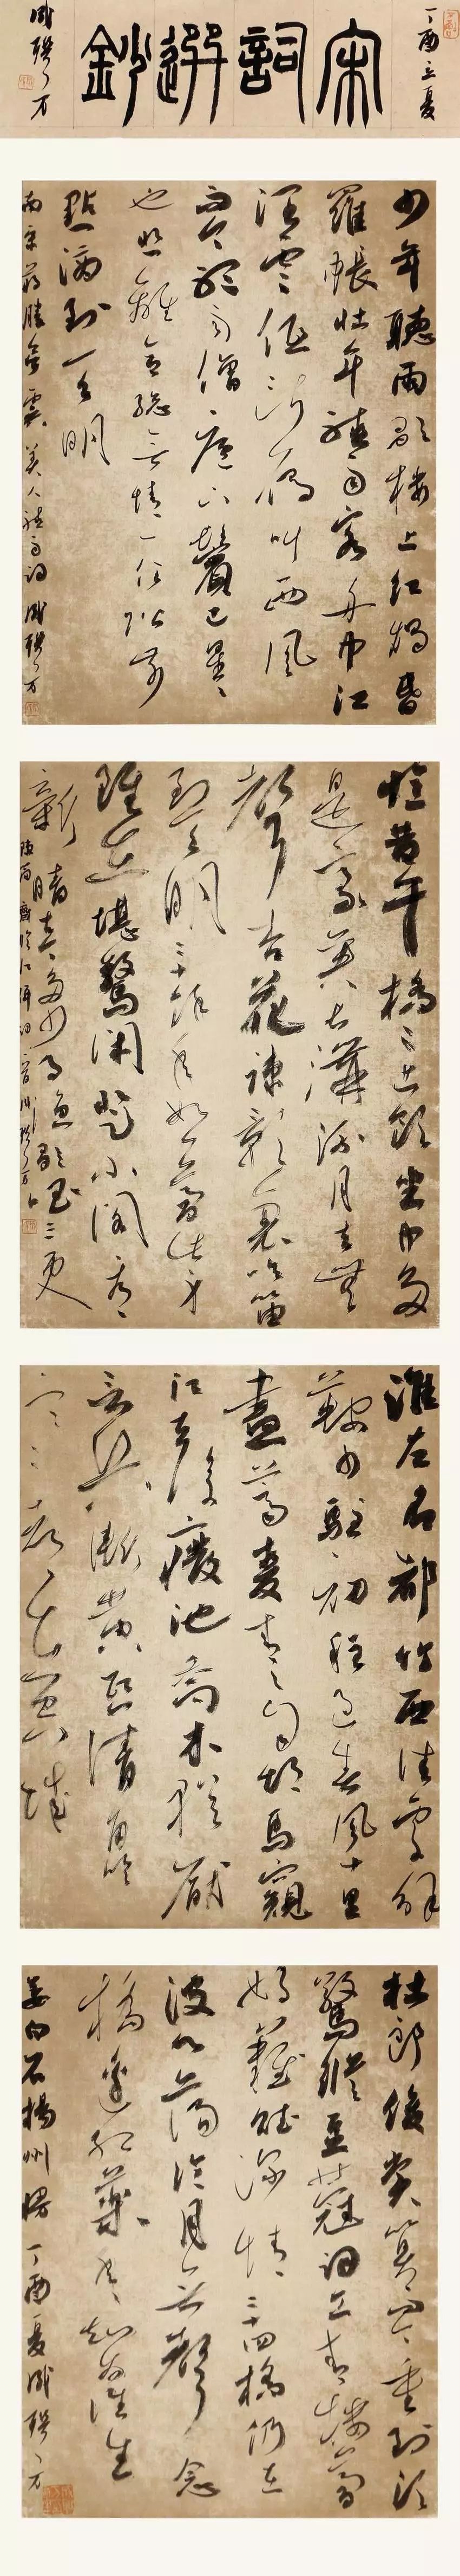 丁酉立夏
宋詞選鈔
少年聽雨歌樓上紅燭昏
羅帳壯年聽雨客舟中江
闊雲低斷鴈叫西風
而今聽雨僧廬下鬢已星星
也悲離合總無情一任階前
點滴到天明
南宋蔣勝欲虞美人聽雨詞
憶昔午橋橋上飲坐中多
是豪英長溝流月去無
聲杏花疎影裏吹笛
到天明二十餘年如一夢此身
雖在堪驚閑登小閣看
新晴古今多少事漁唱起三更
臨江仙詞
淮左名都竹西佳處解
鞍少駐初程過春風十里
盡薺麥青青自胡馬窺
江去後廢池喬木猶厭
言兵漸黃昏清角吹
寒都在空城
杜郎俊賞算而今重到須
驚縱豆蔻詞工青樓夢
好難賦深情二十四橋仍在
波心蕩冷月無聲念
橋邊紅藥年年知為誰生
姜白石揚州慢丁酉夏